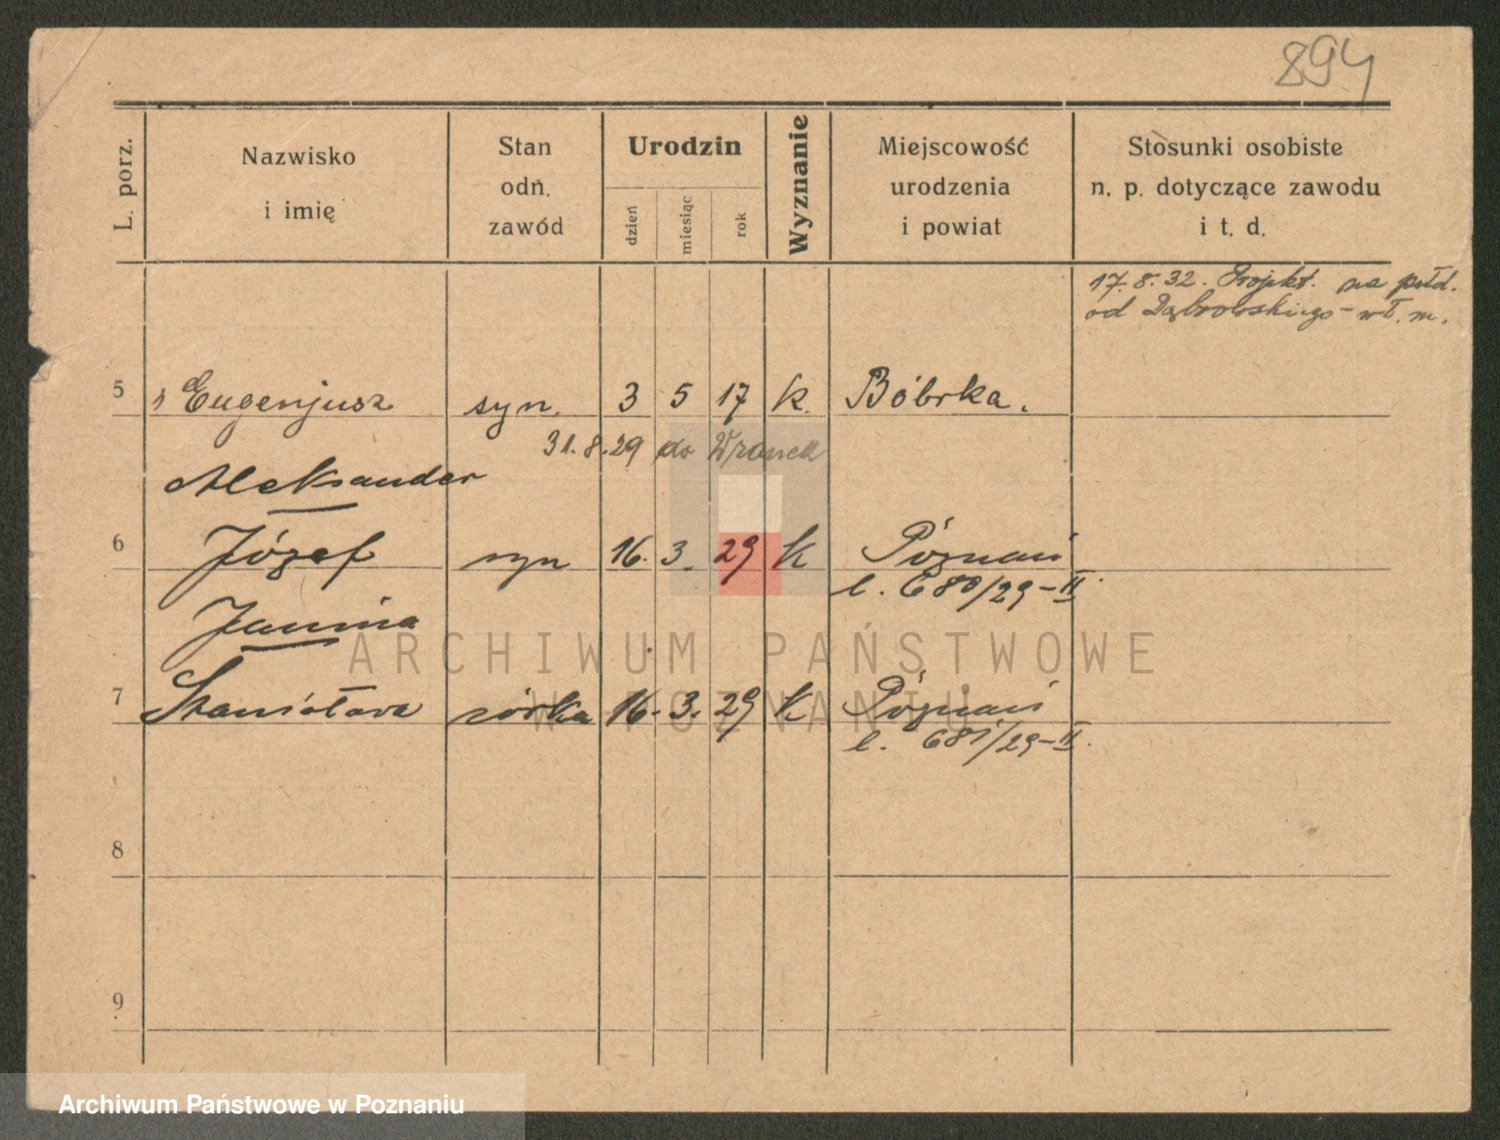 894
L. porz.
Nazwisko
i imię
Stan
odn.
zawód
Urodzin
dzień
miesiąc
rok
Wyznanie
Miejscowość
urodzenia
i powiat
Stosunki osobiste
n. p. dotyczące zawodu
i t. d.
17. 8. 32. na
od Dąbrowskiego - wł. m.
5 Eugenjusz syn. 3 5 17 k. Bóbrka.
31. 8. 29 do Wronek
Aleksander
6 Józef syn 16. 3. 29 k Poznań
l. 680/29-II.
Janina
7 Stanisława córka 16. 3. 29 k Poznań
l. 681/29-II.
8
9
ARCHIWUM PAŃSTWOWE
W POZNANIU
Archiwum Państwowe w Poznaniu